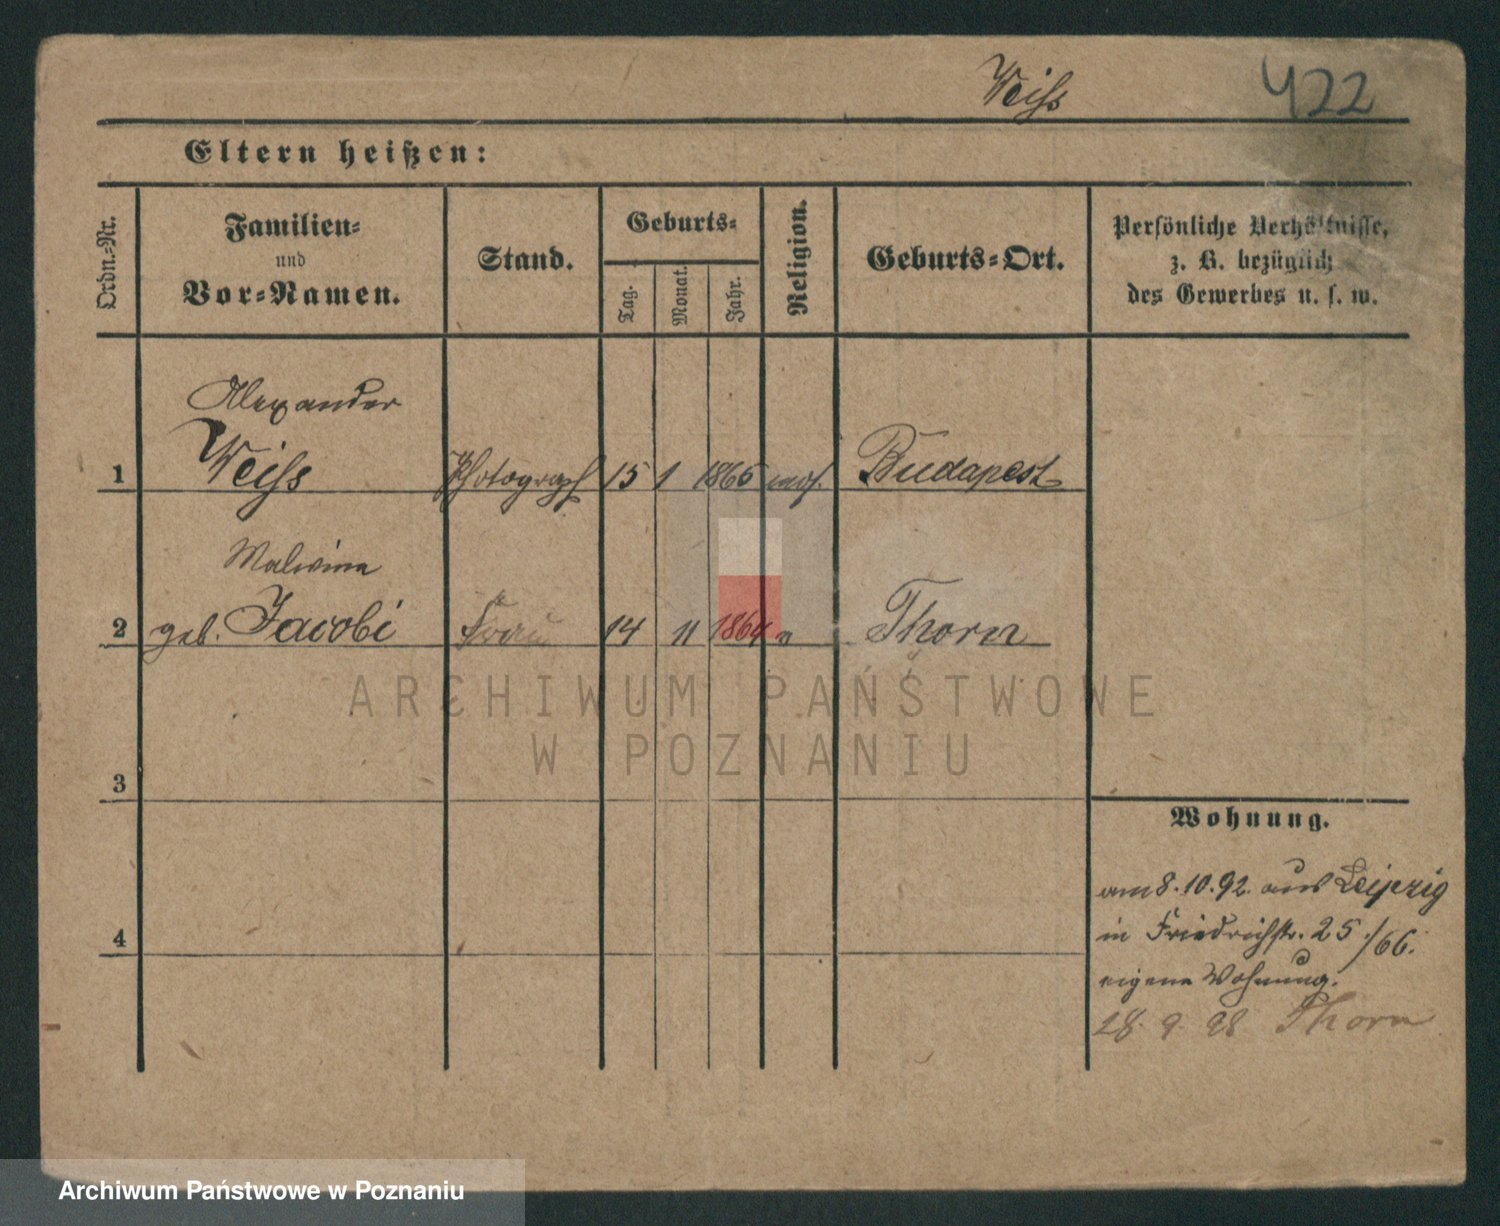 Weiss
422
Eltern heißen:
Ordn.-Nr.
Familien-
und
Vor-Namen.
Stand.
Geburts-
Tag.
Monat.
Jahr.
Religion.
Geburts-Ort.
Persönliche Verhältnisse,
z. B. bezüglich
des Gewerbes u. s. w.
Alexander
1 Weiss Photograph 15 1 1865 mos. Budapest
Malwina
2 geb. Jacobi Frau 14 11 1864 " Thorn
ARCHIWUM PAŃSTWOWE
W POZNANIU
3
Wohnung.
am 8.10.92. aus Leipzig
in Friedrichstr. 25./66.
4
eigene Wohnung.
28. 9. 98 Thorn
Archiwum Państwowe w Poznaniu